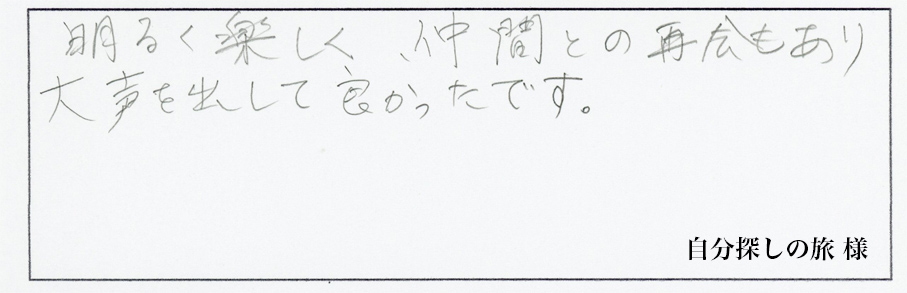 明るく楽しく、仲間との再会もあり
大声を出して良かったです。
自分探しの旅 様